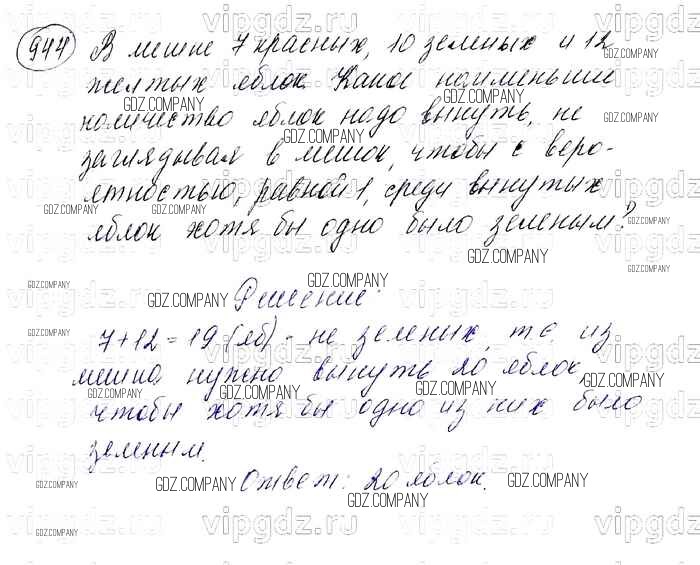 944 В мешке 7 красных, 10 зеленых и 12
желтых яблок. Какое наименьшее
количество яблок надо вынуть, не
заглядывая в мешок, чтобы с веро-
ятностью, равной 1, среди вынутых
яблок хотя бы одно было зеленым?
Решение:
7+12=19 (яб) - не зеленых, т.е. из
мешка нужно вынуть 20 яблок,
чтобы хотя бы одно из них было
зеленым.
Ответ: 20 яблок.
vipgdz.ru
GDZ.COMPANY